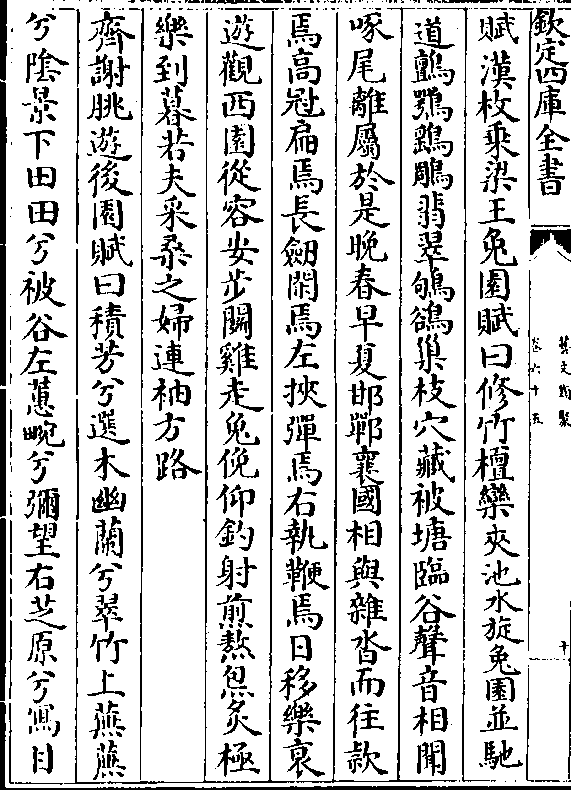 欽定四庫全書
藝文類聚
卷六十五
十
賦漢枚乘梁王兔園賦曰修竹檀欒夾池水旋兔園並馳
道鸓鶚鷂鵰翡翠鴝鵒巢枝穴藏被塘臨谷聲音相聞
啄尾離屬於是晚春早夏邯鄲襄國相與雜沓而往款
焉高冠扁焉長劒閑焉左挾彈焉右執鞭焉日移樂衰
遊觀西園從容安步鬭雞走兔俛仰釣射煎熬炰炙極
樂到暮若夫采桑之婦連袖方路
齊謝朓遊後園賦曰積芳兮選木幽蘭兮翠竹上蕪蕪
兮陰景下田田兮被谷左蕙畹兮彌望右芝原兮寫目